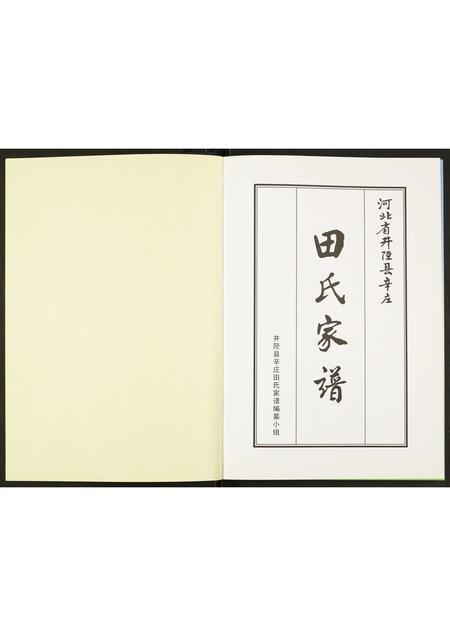 河北省井陉县辛庄
田氏家谱
井陉县辛庄田氏家谱编纂小组